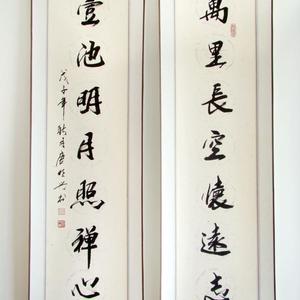 萬里長空懷遠志
壹池明月照禪心
戊子年秋月